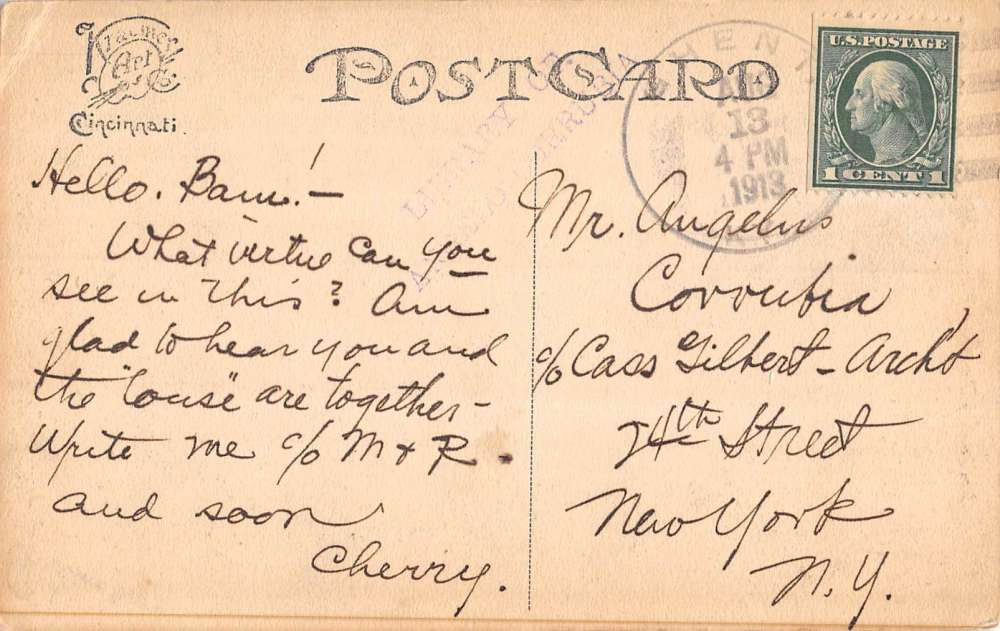 Kraemer Art Co.
Cincinnati.
POST CARD
AUG
13
4 PM
1913
U.S. POSTAGE
1 CENT 1
Hello. Bam!—
What virtue can you
see in this? Am
glad to hear you and
the "Couse" are together—
Write me c/o M & R.
and soon
Cherry.
Mr. Angelus
Corrubia,
c/o Cass Gilbert - Archt
24th Street
New York
N. Y.